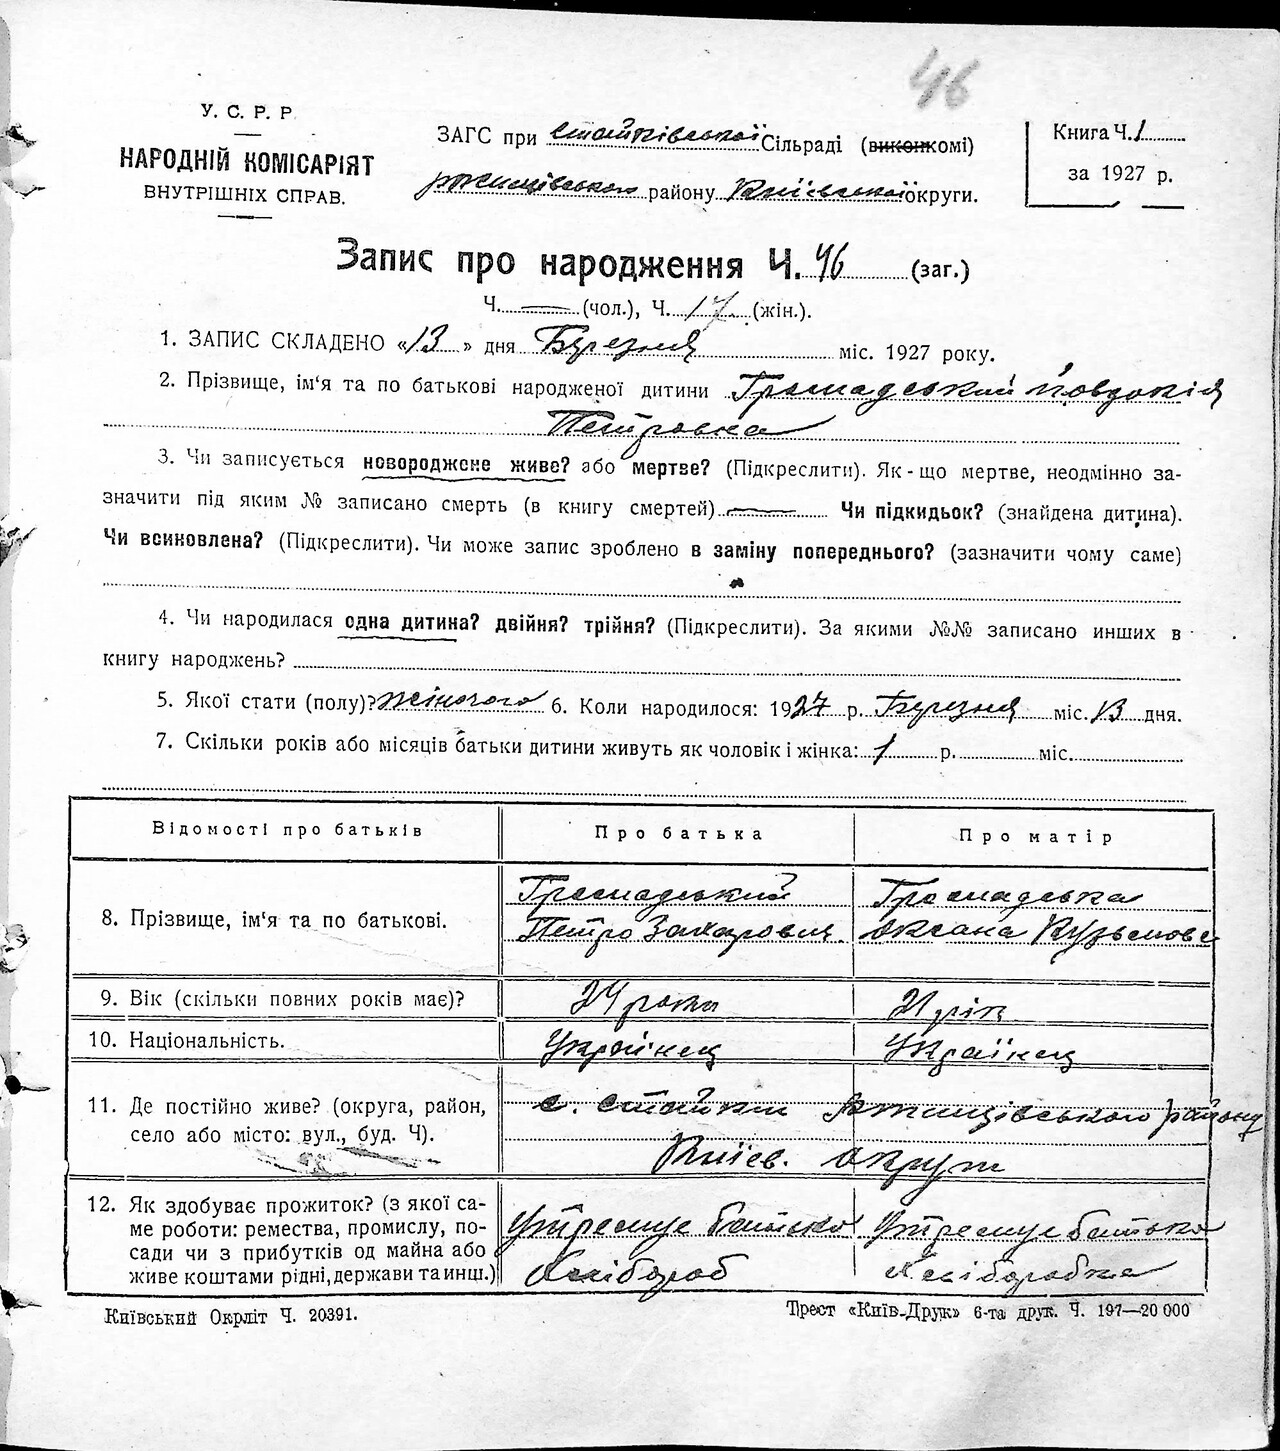 46
У. С. Р. Р
НАРОДНІЙ КОМІСАРІЯТ
ВНУТРІШНІХ СПРАВ.
ЗАГС при Стайківської Сільраді (виконкомі)
Ржищівського району Київської округи.
Книга Ч. 1
за 1927 р.
Запис про народження Ч. 46 (заг.)
Ч. (чол.), Ч. 17. (жін.).
1. ЗАПИС СКЛАДЕНО «13» дня Березня міс. 1927 року.
2. Прізвище, ім‘я та по батькові народженої дитини Громадський Йовдокія
Петровна
3. Чи записується новороджене живе? або мертве? (Підкреслити). Як-що мертве, неодмінно за-
значити під яким № записано смерть (в книгу смертей) Чи підкидьок? (знайдена дитина).
Чи всиновлена? (Підкреслити). Чи може запис зроблено в заміну попереднього? (зазначити чому саме)
4. Чи народилася одна дитина? двійня? трійня? (Підкреслити). За якими №№ записано инших в
книгу народжень?
5. Якої стати (полу)? жіночого 6. Коли народилося: 1927 р. Березня міс. 13 дня.
7. Скільки років або місяців батьки дитини живуть як чоловік і жінка: 1 р. міс.
Відомості про батьків Про батька Про матір
8. Прізвище, ім‘я та по батькові.
Громадський
Петро Захарович.
Громадська
Оксана Кузьмовс
9. Вік (скільки повних років має)? 24 роки 21 рік
10. Національність. Українец Українец
11. Де постійно живе? (округа, район,
село або місто: вул., буд. Ч).
с. Стайки Ржищівського району
Київ. округи
12. Як здобуває прожиток? (з якої са-
ме роботи: ремества, промислу, по-
сади чи з прибутків од майна або
живе коштами рідні, держави та инш.)
Утремує батько
Хлібороб
Утремує батько
Хліборобка
Київський Окрліт Ч. 20391.
Трест «Київ-Друк» 6-та друк. Ч. 197—20 000